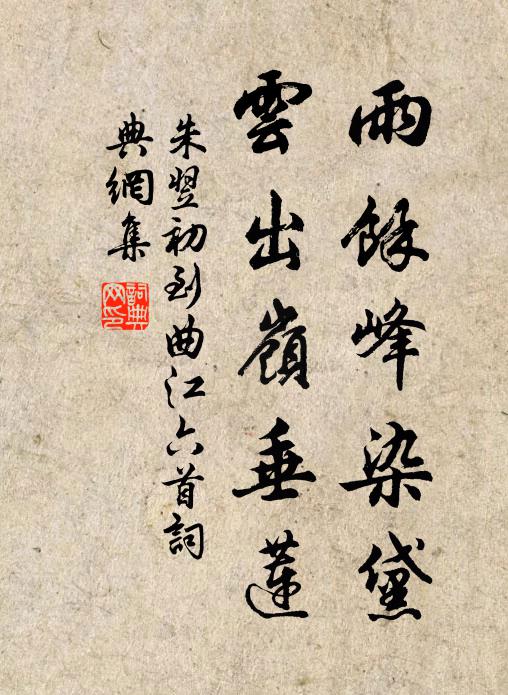 雨餘峰染黛
雲出嶺垂蓮
朱翌初到曲江六首詞
典網集
詞典網印